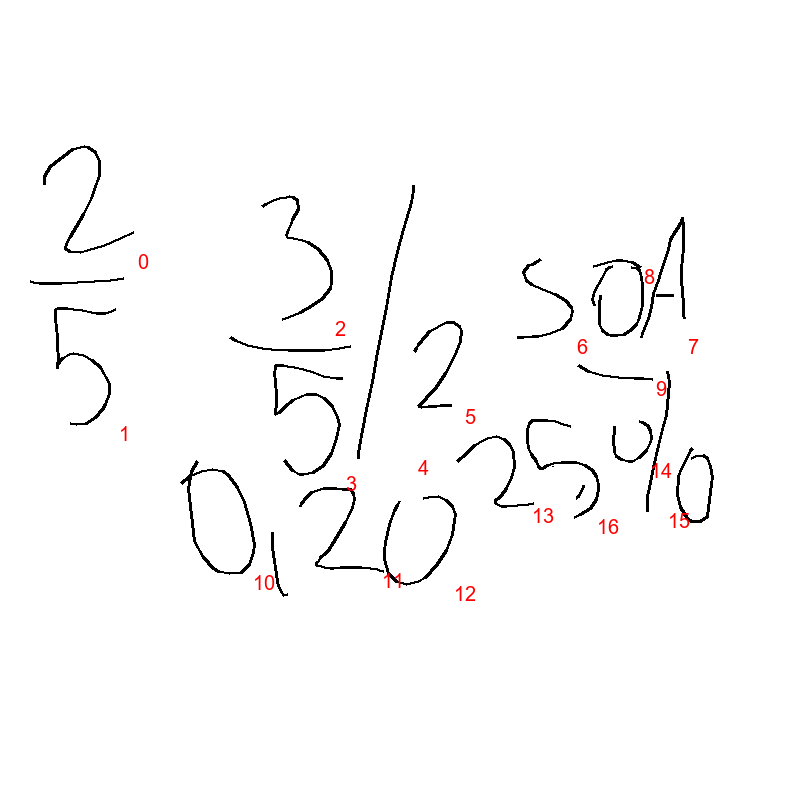 2
5
0
1
3
5
2
3
/
4
2
5
50A
6
8
7
9
0,20
10
11
12
25%
13
16
14
15